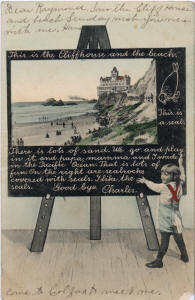 Dear Raymond, Saw the Cliff House
and beach Sunday
with me
This is the Cliffhouse and the beach.
This is
a seal.
There is lots of sand. We go and play
in it and papa, mamma, and I wade
in the Pacific Ocean. That is lots of
fun. On the right are sealrocks
covered with seals. I like the
seals.
Good bye,
Charles.
come to meet me.